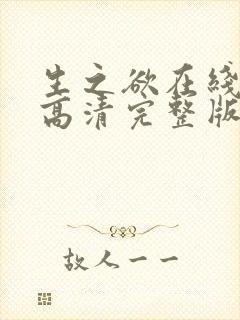 生之欲在线
高清完整版
故人一一